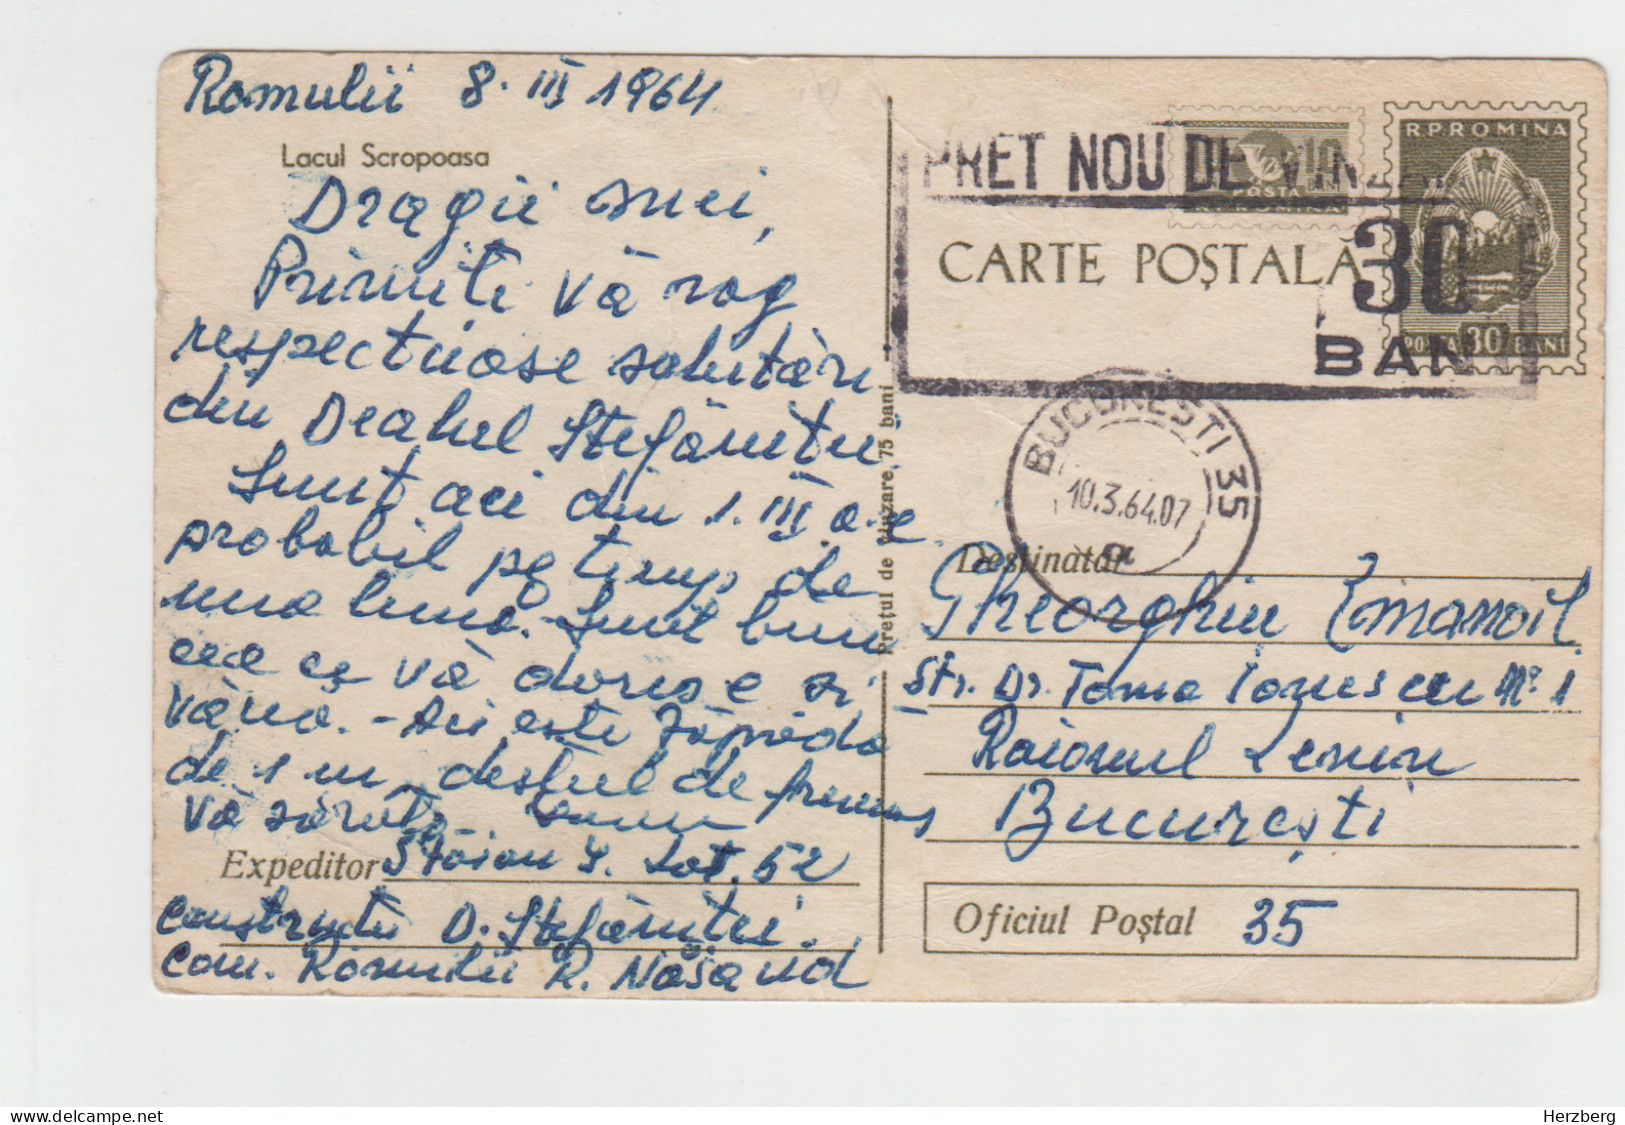 Romulii 8. III 1964
Lacul Scropoasa
Dragii mei,
Primiti vă rog
respectuoase salutări
din Dealul Ștefăniței
Sunt aci din 1. III a.c
probabil pe timp de
una lună. Sunt bine
ceea ce vă doresc și
vouă. - Aci este zăpada
de 1 m, destul de frumos
Vă sărută
Expeditor Stoian I. Lot. 52
Constructii D. Ștefăniței.
Com. Romulii R. Năsăud
Prețul de vînzare, 75 bani
PRET NOU DE VIN
30
BAN
POSTA
R.P.ROMINA
POSTA 30 BANI
CARTE POȘTALĂ
BUCUREȘTI 35
10.3.64.07
Destinatar
Gheorghiu Emanoil
Str. Dr. Toma Ionescu Nº 1
Raionul Lenin
București
Oficiul Poștal 35
delcampe.net
Herzberg